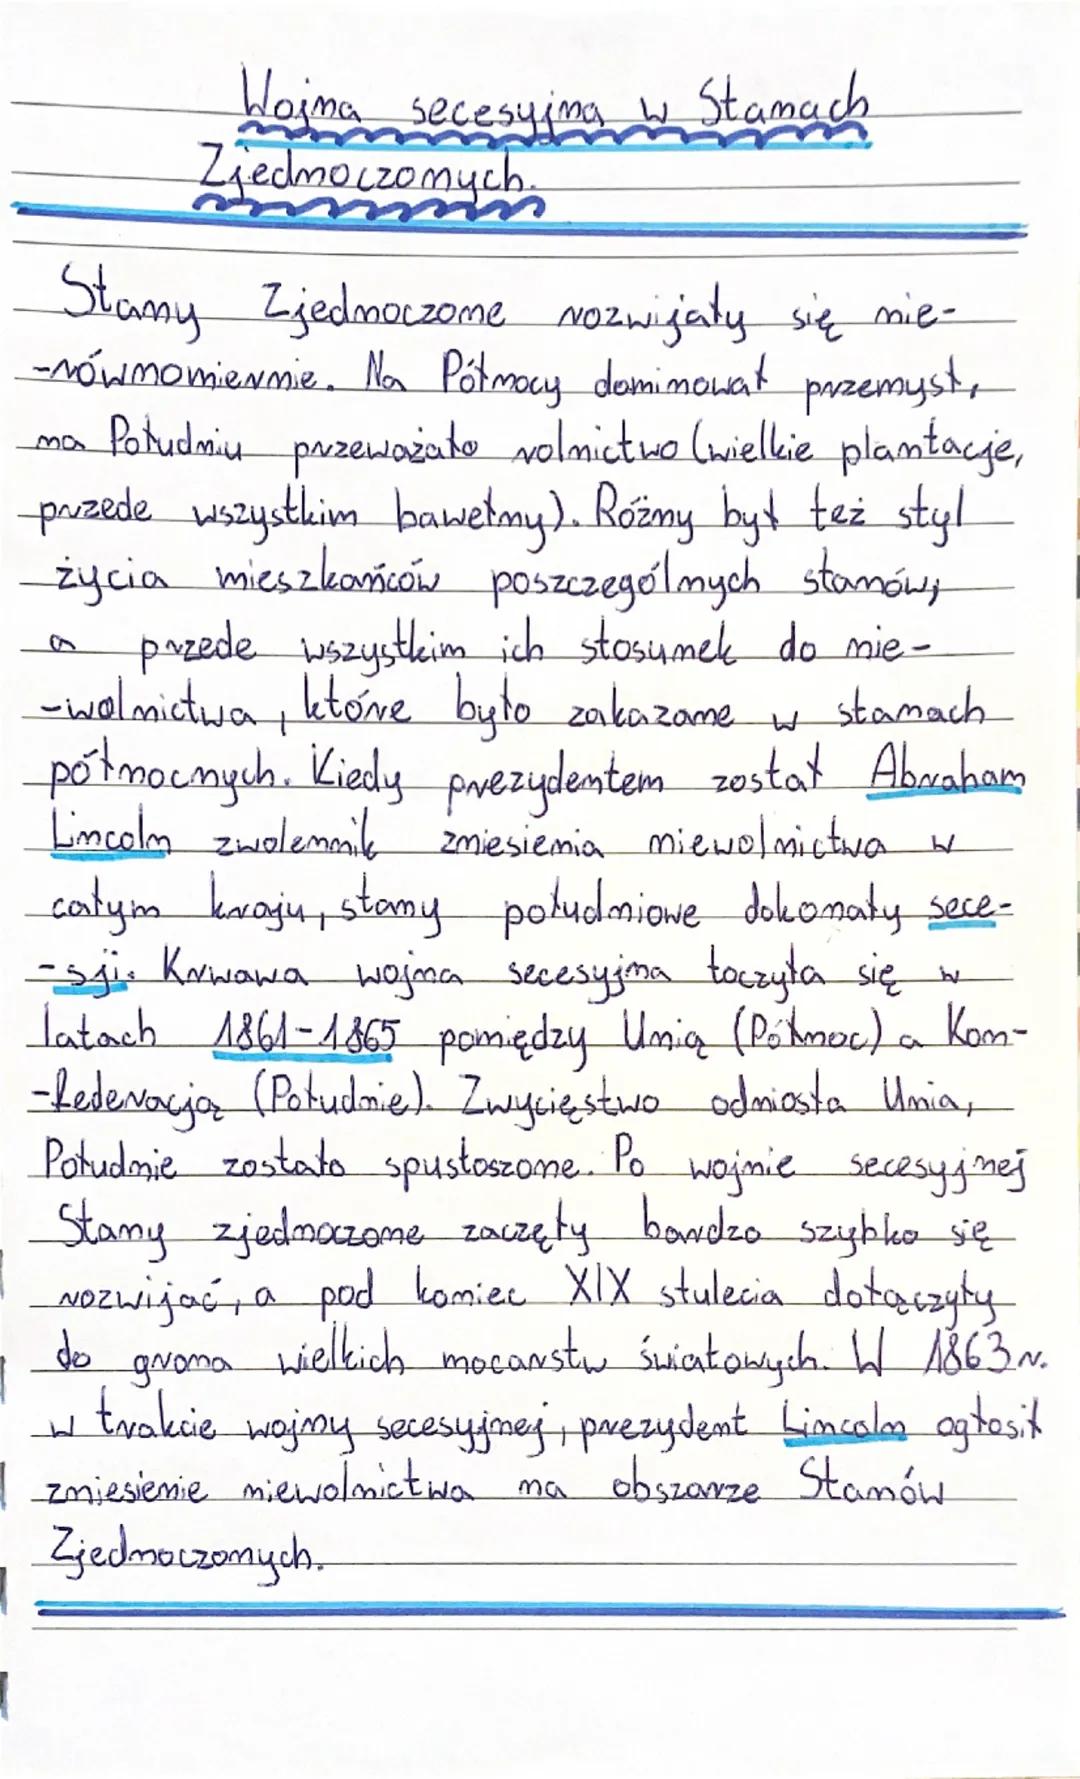 Wojna secesyjna w Stanach
Zjednoczonych.
Stany Zjednoczone rozwijały się nie-
-równomiernie. Na Północy dominował przemysł,
na Południu przeważało rolnictwo (wielkie plantacje,
przede wszystkim bawełny). Różny był też styl
życia mieszkańców poszczególnych stanów,
a przede wszystkim ich stosunek do nie-
-wolnictwa, które było zakazane w stanach
północnych. Kiedy prezydentem został Abraham
Lincoln zwolennik zniesienia niewolnictwa w
całym kraju, stany południowe dokonały sece-
-sji. Krwawa wojna secesyjna toczyła się w
latach 1861-1865 pomiędzy Unią (Północ) a Kon-
-federacją (Południe). Zwycięstwo odniosła Unia,
Południe zostało spustoszone. Po wojnie secesyjnej
Stany zjednoczone zaczęły bardzo szybko się
rozwijać, a pod koniec XIX stulecia dołączyły
do grona wielkich mocarstw światowych. W 1863 r.
w trakcie wojny secesyjnej, prezydent Lincoln ogłosił
zniesienie niewolnictwa na obszarze Stanów
Zjednoczonych.